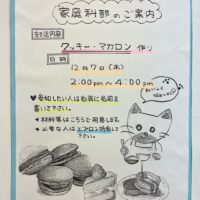 家庭科部のご案内
部活内容
クッキー・マカロン 作り
日時
12月7日(木)
2:00pm ～ 4:00pm
♥ 参加したい人は名表に名前を
書いて下さい。
★ 材料等はこちらで用意します。
★ 必要な人はエプロン持参して
下さい。